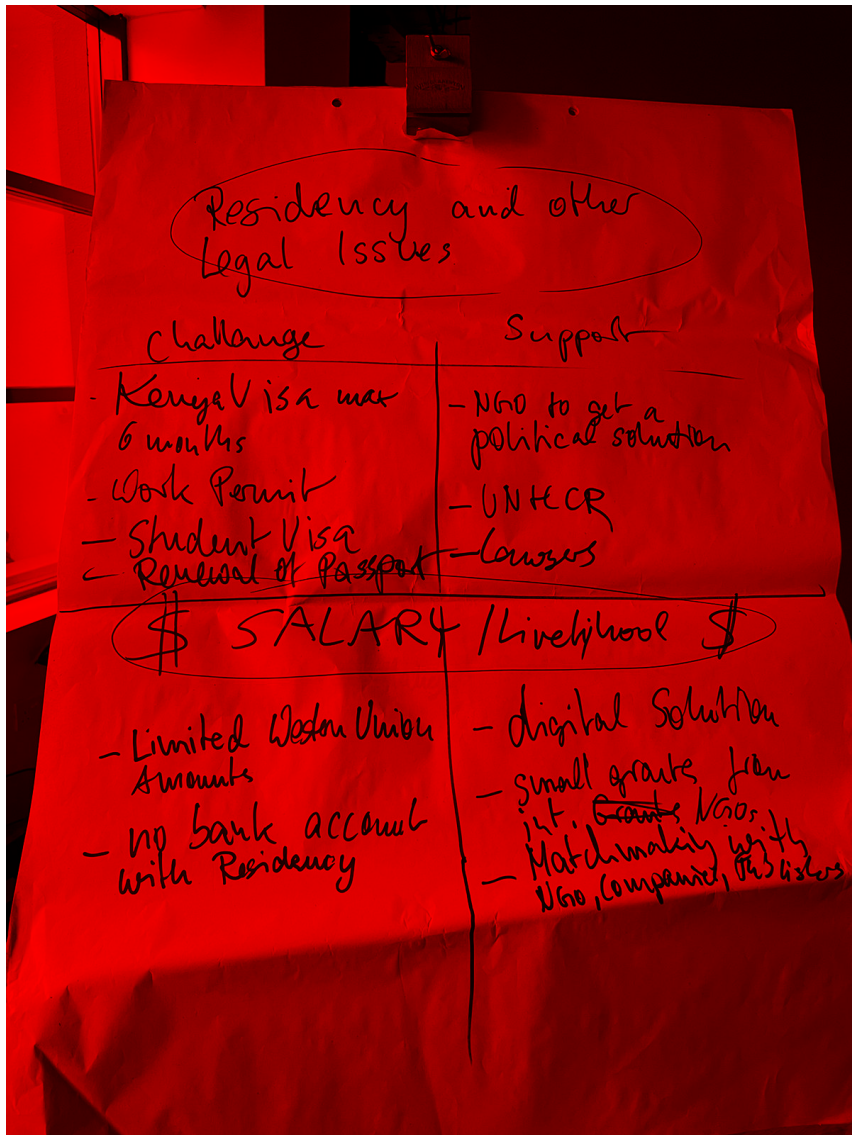 Residency and other
Legal Issues
Challange
Support
- Kenya Visa max
6 months
- Work Permit
- Student Visa
- Renewal of Passport
- NGO to get a
political solution
- UNHCR
- Lawyers
$ SALARY / Livelihood $
- Limited Western Union
Amounts
- no bank account
with Residency
- digital Solution
- small grants from
int. Grants NGOs
- Matchmaking with
NGO, Companies, Publishers